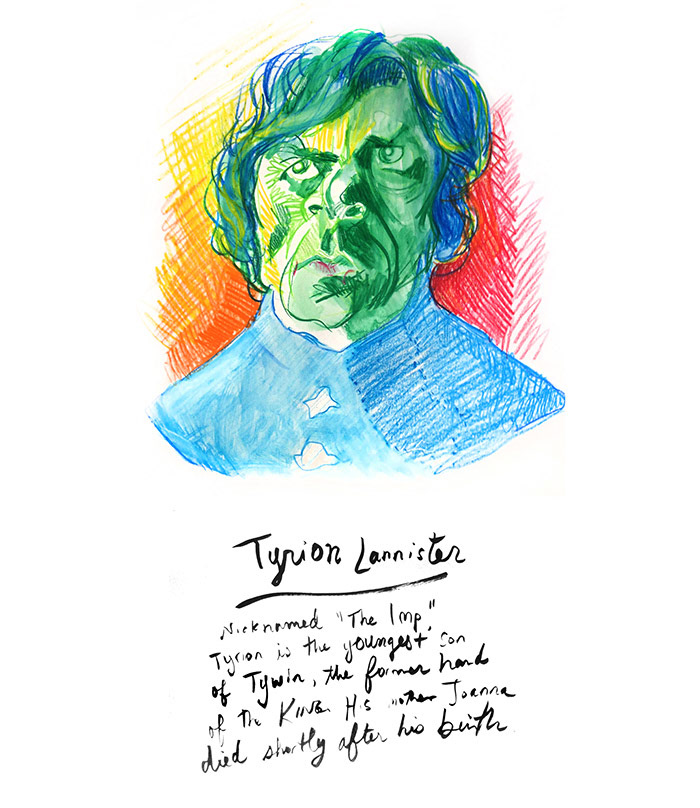 Tyrion Lannister
Nicknamed "The Imp",
Tyrion is the youngest son
of Tywin, the former hand
of the King. His mother Joanna
died shortly after his birth.